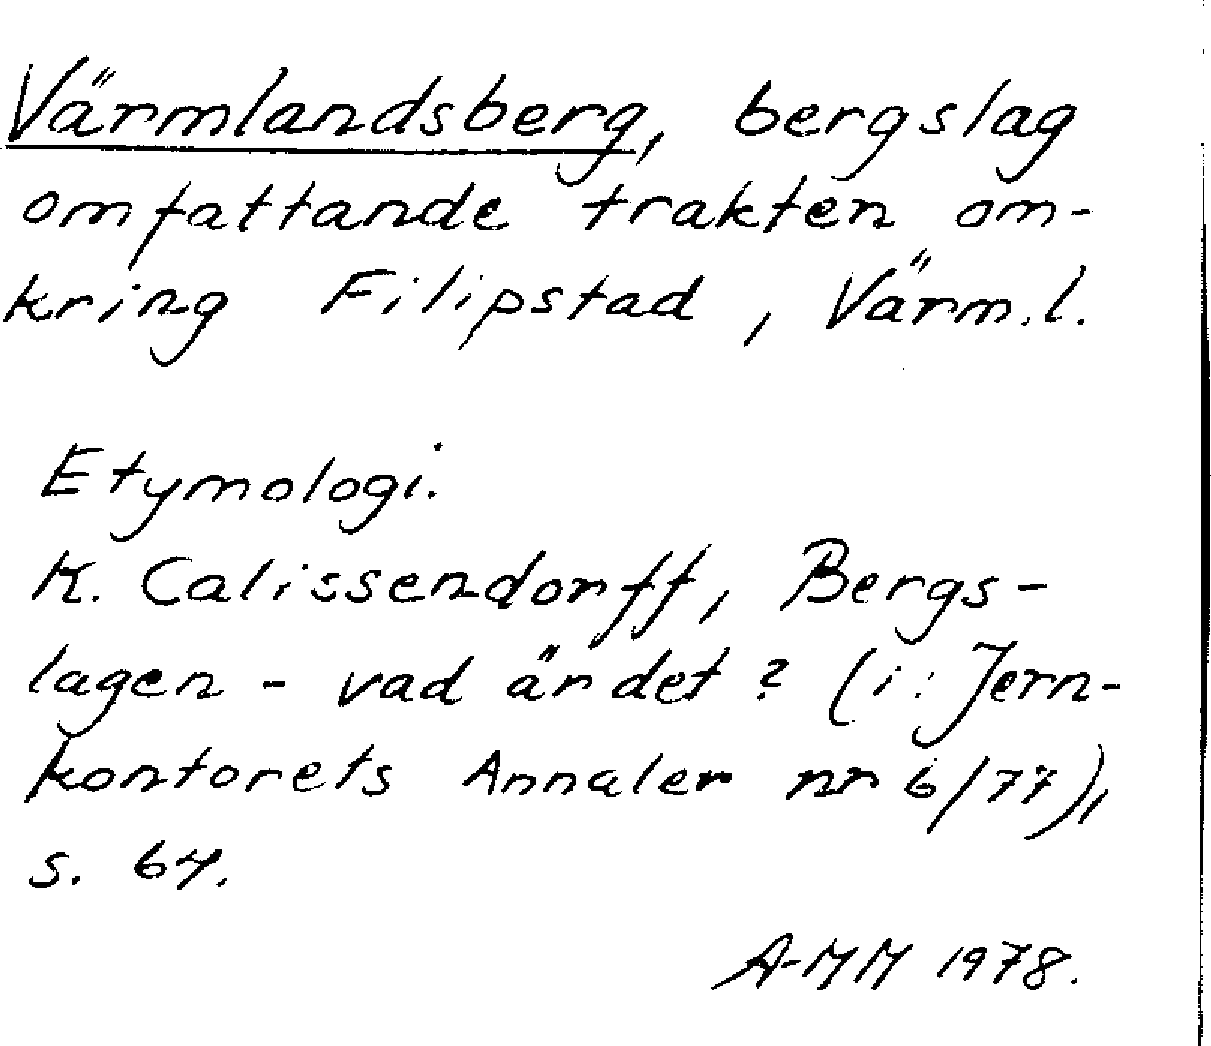 Värmlandsberg, bergslag
omfattande trakten om-
kring Filipstad, Värml.
Etymologi.
K. Calissendorff, Bergs-
lagen - vad är det? (i: Jern-
kontorets Annaler nr 6/77),
s. 64.
A-MM 1978.